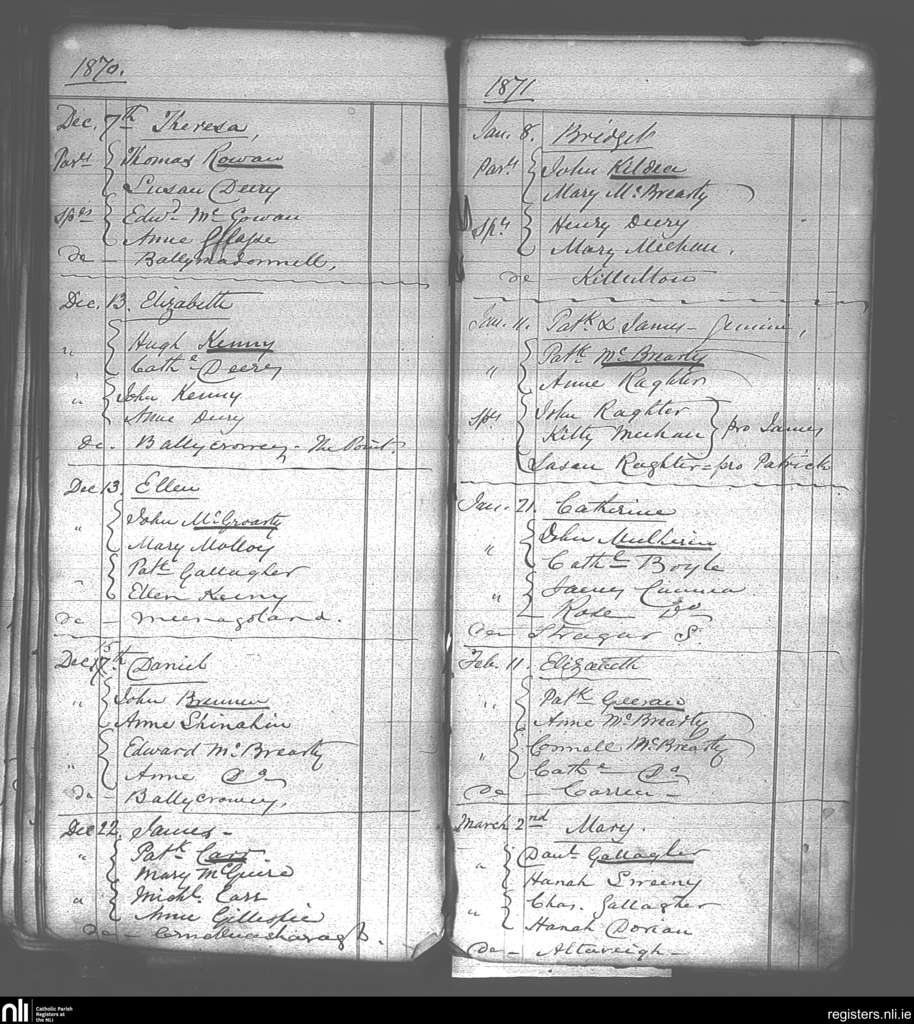 1870.
Dec. 7th Theresa,
Parts Thomas Rowan
Susan Deery
Sprs Edwd Mc Gowan
Anne
de - Ballymadonnell,
Dec. 13. Elizabeth
" Hugh Kenny
Cathe Deery
" John Kenny
Anne Deery
de. Ballycroney - The Point.
Dec 13. Ellen
" John McGroarty
Mary Molloy
" Patk Gallagher
Ellen Kenny
de - Meenagoland.
Dec 17th 15 Daniel
" John Brennen
Anne Shinahin
" Edward Mc Brearty
Anne Do
de - Ballycroney,
Dec 22. James -
" Patk Carr
Mary McGuire
" Michl. Carr
Anne Gillespie
de -
1871
Jan. 8. Bridget
Parts John Kildea
Mary McBrearty
Sprs Henry Deery
Mary Meehan,
de Killultow
Jan. 11. Patk & James - Gemini,
" Patk McBrearty
Anne Raghter
Sprs John Raghter
Kitty Meehan pro James
Susan Raghter = pro Patrick
Jan. 21. Catherine
" John Mulherin
Cathe Boyle
" James Cunnea
- Rose Do
de Stragar S.
Feb. 11. Elizabeth
" Patk Geeran
Anne McBrearty
" Connell McBrearty
Cathe - Do
de - Correen -
March 2nd Mary.
" Danl Gallagher
Hanah Sweeny
" Chas. Gallagher
Hanah Dorian
de - Altaveigh -
nli
Catholic Parish
Registers at
the NLI
registers.nli.ie